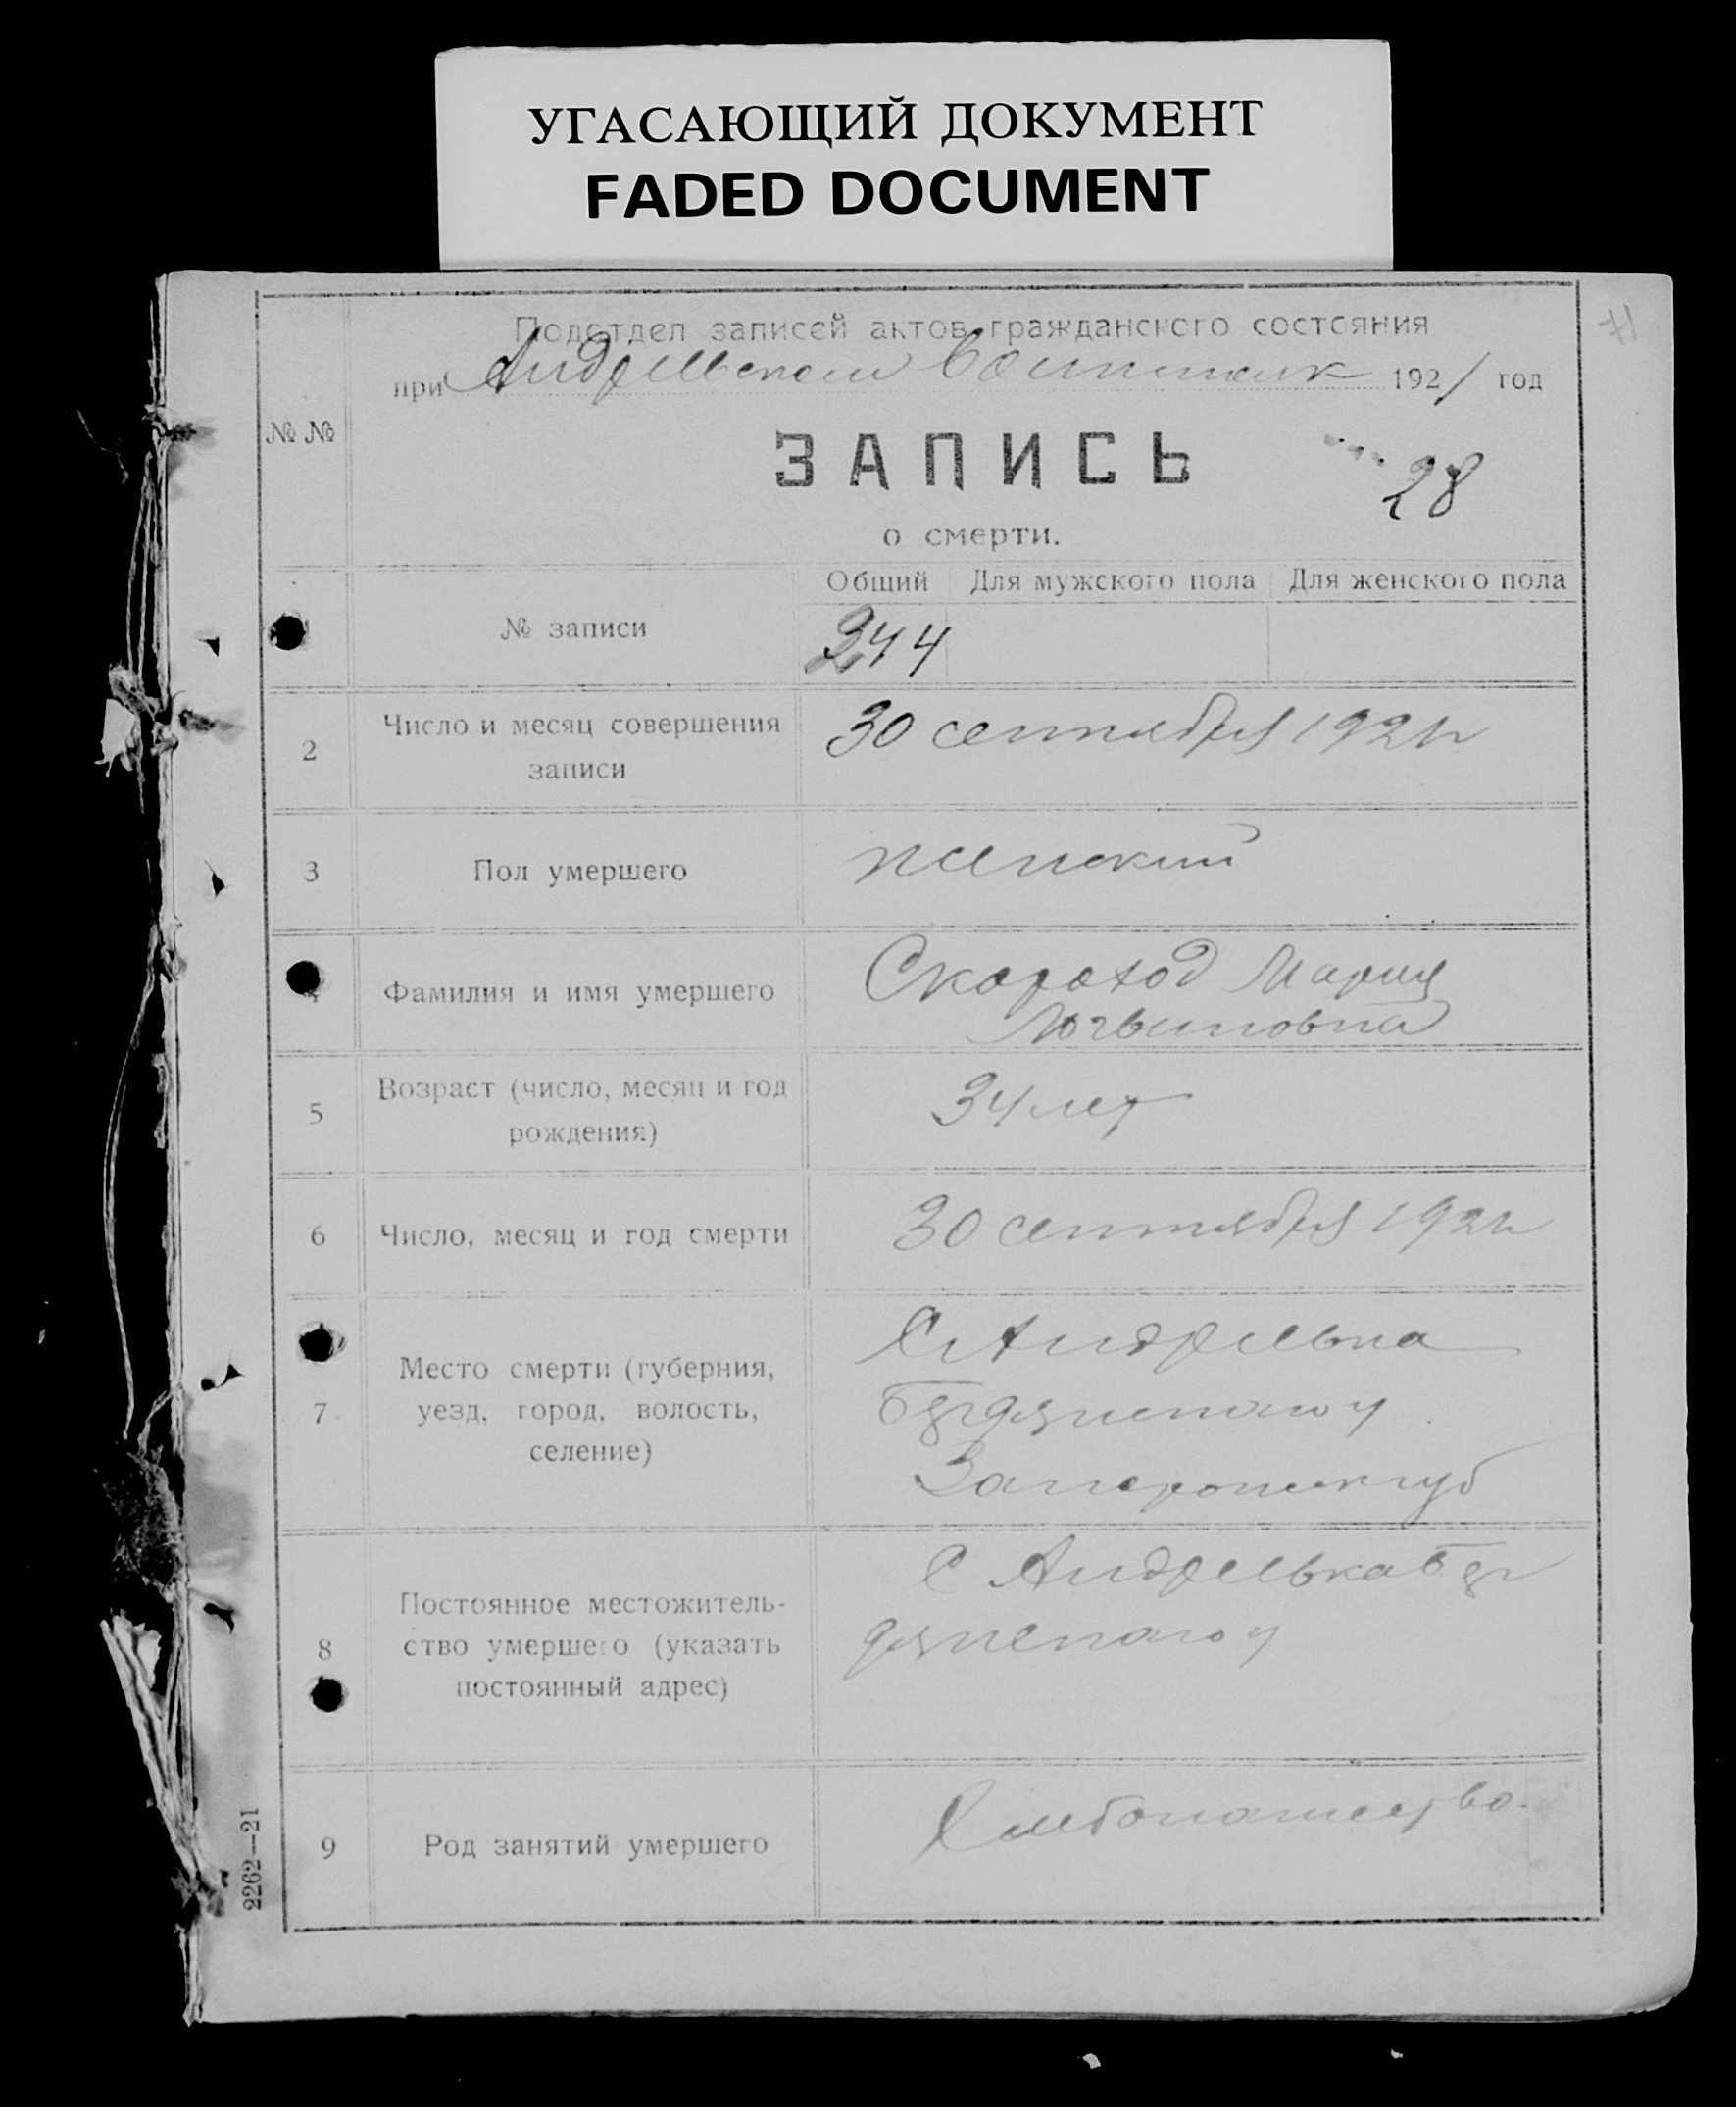 УГАСАЮЩИЙ ДОКУМЕНТ
FADED DOCUMENT
71
Подотдел записей актов гражданского состояния
при Андреевском Волисполк 1921 год
№ №
ЗАПИСЬ
28
о смерти.
Общий Для мужского пола Для женского пола
№ записи 244
2 Число и месяц совершения
записи
30 сентября 1921 г
3 Пол умершего женский
Фамилия и имя умершего
Скороход Мария
Логвиновна
5 Возраст (число, месяц и год
рождения)
34 лет
6 Число, месяц и год смерти 30 сентября 1921 г
7 Место смерти (губерния,
уезд, город, волость,
селение)
С. Андреевка
Бердянского у
Запорожск губ
8 Постоянное местожитель-
ство умершего (указать
постоянный адрес)
С Андреевка Бер
дянского у
9 Род занятий умершего Хлебопашество.
2262—21